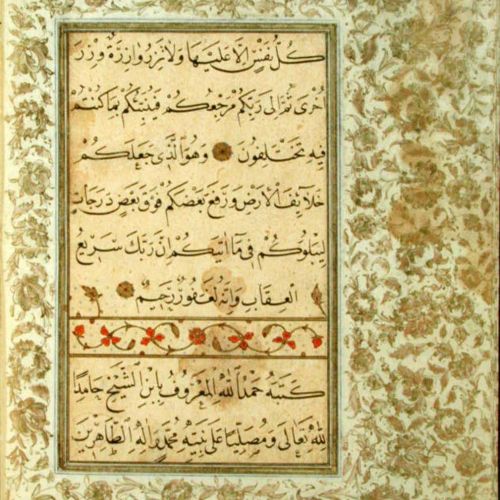 كُلُّ نَفْسٍ إِلَّا عَلَيْهَا وَلَا تَزِرُ وَازِرَةٌ وِزْرَ
أُخْرَى ثُمَّ إِلَى رَبِّكُمْ مَرْجِعُكُمْ فَيُنَبِّئُكُمْ بِمَا كُنْتُمْ
فِيهِ تَخْتَلِفُونَ وَهُوَ الَّذِي جَعَلَكُمْ
خَلَائِفَ الْأَرْضِ وَرَفَعَ بَعْضَكُمْ فَوْقَ بَعْضٍ دَرَجَاتٍ
لِيَبْلُوَكُمْ فِي مَا آتَيكُمْ إِنَّ رَبَّكَ سَرِيعُ
الْعِقَابِ وَإِنَّهُ لَغَفُورٌ رَحِيمٌ
كَتَبَهُ حَمْدُ اللهِ الْمَعْرُوفُ بِابْنِ الشَّيْخِ حَامِدًا
لِلّٰهِ تَعَالَى وَمُصَلِّيًا عَلَى نَبِيِّهِ مُحَمَّدٍ وَآلِهِ الطَّاهِرِينَ